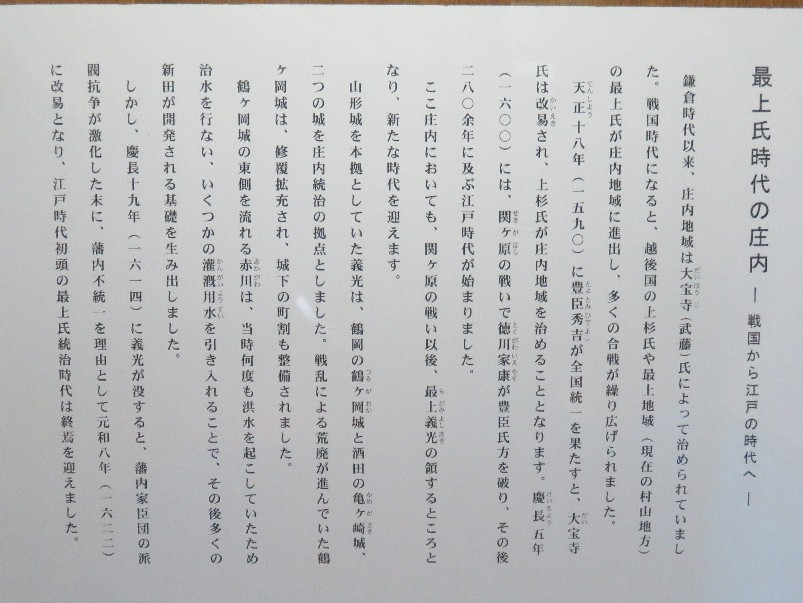 最上氏時代の庄内 ― 戦国から江戸の時代へ ―
鎌倉時代以来、庄内地域は大宝寺(武藤)氏によって治められていまし
た。戦国時代になると、越後国の上杉氏や最上地域(現在の村山地方)
の最上氏が庄内地域に進出し、多くの合戦が繰り広げられました。
天正十八年(一五九〇)に豊臣秀吉が全国統一を果たすと、大宝寺
氏は改易され、上杉氏が庄内地域を治めることとなります。慶長五年
(一六〇〇)には、関ヶ原の戦いで徳川家康が豊臣氏方を破り、その後
二八〇余年に及ぶ江戸時代が始まりました。
ここ庄内においても、関ヶ原の戦い以後、最上義光の領するところと
なり、新たな時代を迎えます。
山形城を本拠としていた義光は、鶴岡の鶴ヶ岡城と酒田の亀ヶ崎城、
二つの城を庄内統治の拠点としました。戦乱による荒廃が進んでいた鶴
ケ岡城は、修覆拡充され、城下の町割も整備されました。
鶴ヶ岡城の東側を流れる赤川は、当時何度も洪水を起こしていたため
治水を行ない、いくつかの灌漑用水を引き入れることで、その後多くの
新田が開発される基礎を生み出しました。
しかし、慶長十九年(一六一四)に義光が没すると、藩内家臣団の派
閥抗争が激化した末に、藩内不統一を理由として元和八年(一六二二)
に改易となり、江戸時代初頭の最上氏統治時代は終焉を迎えました。